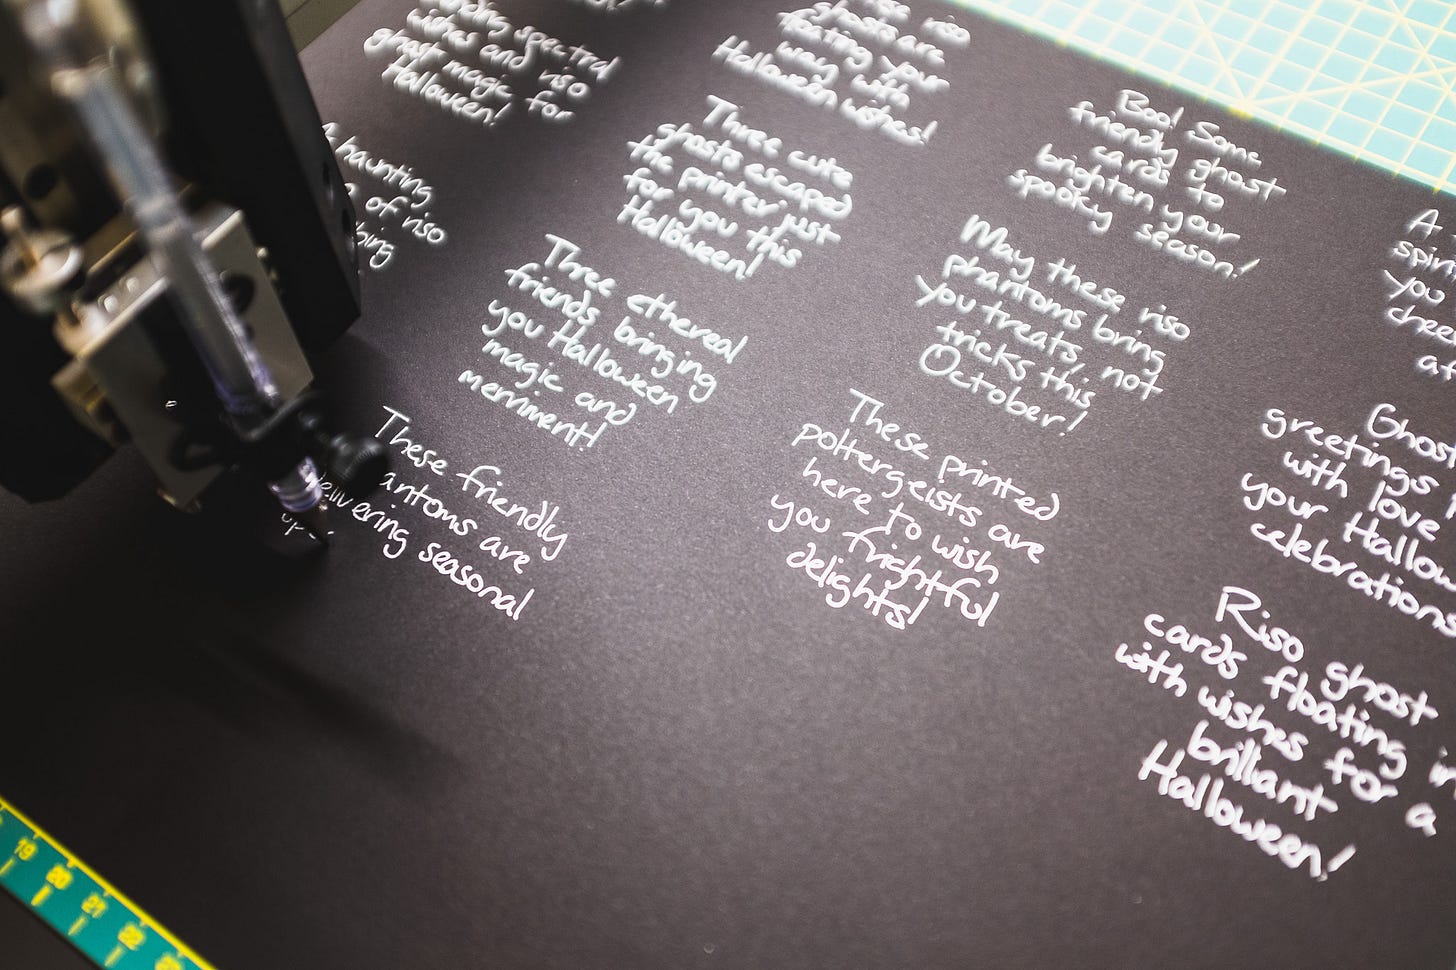 spectral
wishes and riso
ghost magic for
Halloween!
riso
ghosts are
floating your
way with
Halloween wishes!
A haunting
of riso
Three cute
ghosts escaped
the printer just
for you this
Halloween!
Boo! Some
friendly ghost
cards to
brighten your
spooky season!
Three ethereal
friends bringing
you Halloween
magic and
merriment!
May these riso
phantoms bring
you treats, not
tricks this
October!
A
you
These friendly
are
delivering seasonal
These printed
poltergeists are
here to wish
you frightful
delights!
Ghost
greetings
with love
your
celebrations
Riso ghost
cards floating in
with wishes for a
brilliant
Halloween!
19
20
21
22